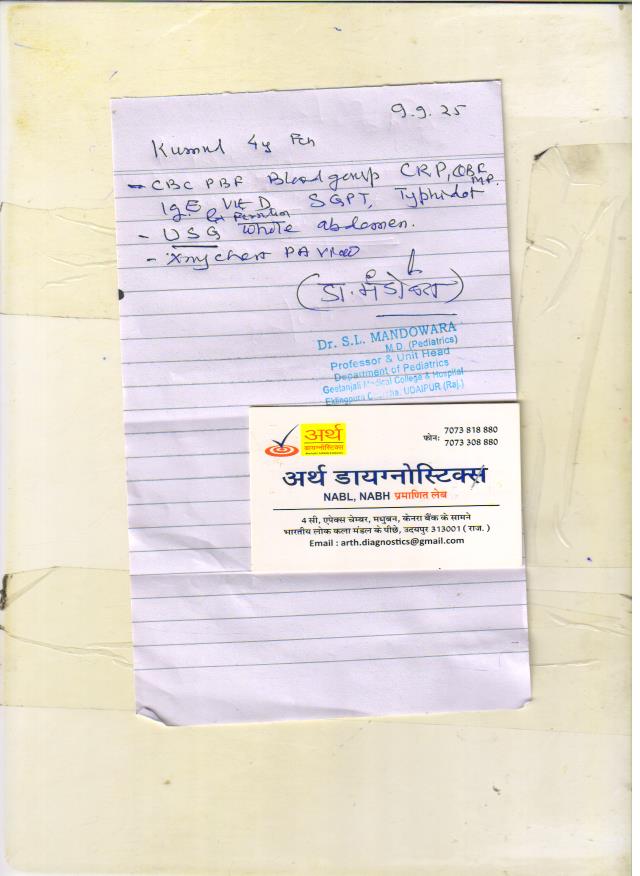 9.9.25
4y Fch
- CBC PBF Blood group CRP, QBC M.P.
IgE Vit D SGPT, Typhidot
- USG Whole abdomen.
- Xray chest PA View
(डा. मंडोवरा)
Dr. S.L. MANDOWARA
M.D. (Pediatrics)
Professor & Unit Head
Department of Pediatrics
Geetanjali Medical College & Hospital
UDAIPUR (Raj.)
अर्थ
डायग्नोस्टिक्स
फोन: 7073 818 880
7073 308 880
अर्थ डायग्नोस्टिक्स
NABL, NABH प्रमाणित लेब
4 सी, एपेक्स चेम्बर, मधुबन, केनरा बैंक के सामने
भारतीय लोक कला मंडल के पीछे, उदयपुर 313001 ( राज. )
Email : arth.diagnostics@gmail.com